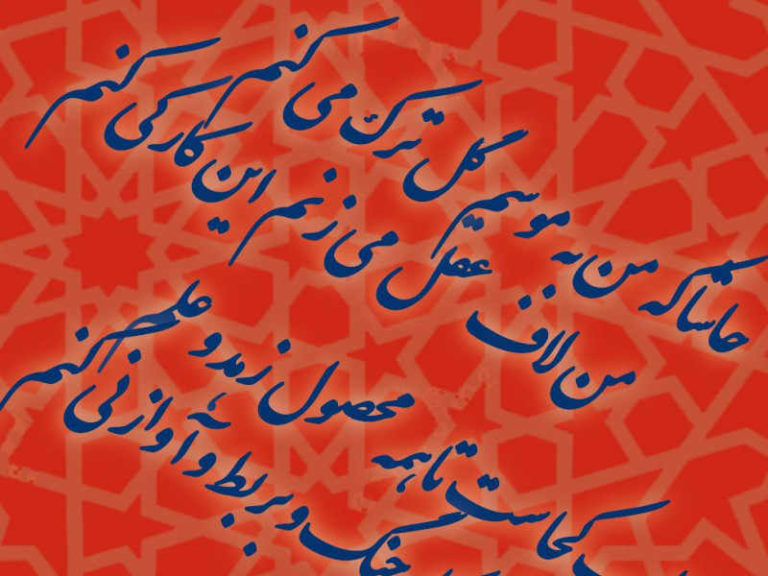 حاشا که من به موسم گل ترک می کنم
من لاف عقل می زنم این کار کی کنم
کجاست تا همه محصول زهد و علم
چنگ و بربط و آواز نی کنم